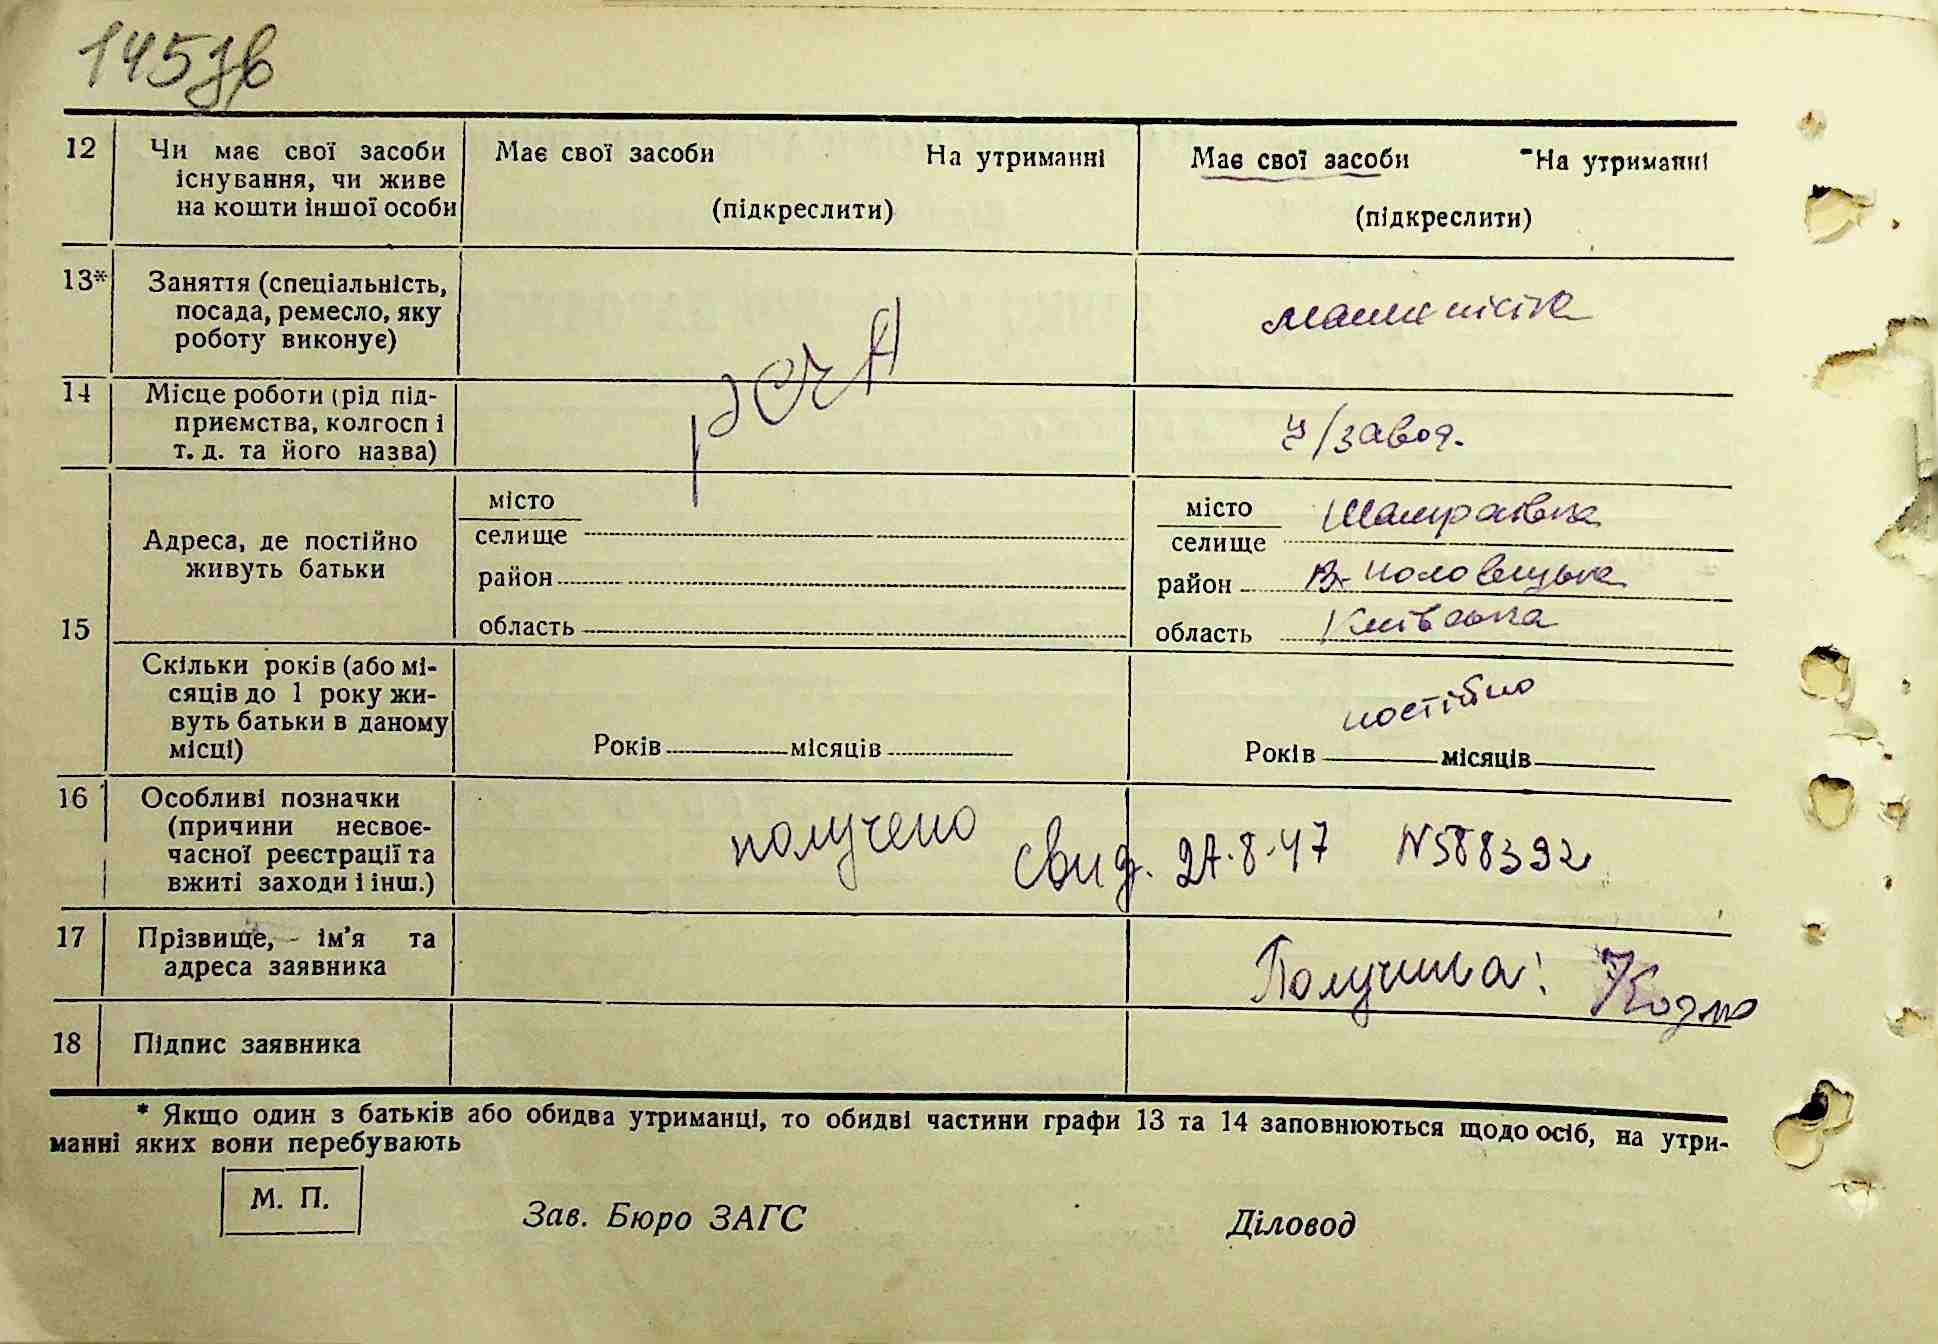 145зв
12 Чи має свої засоби існування, чи живе на кошти іншої особи
Має свої засоби На утриманні
(підкреслити)
Має свої засоби На утриманні
(підкреслити)
13* Заняття (спеціальність,
посада, ремесло, яку
роботу виконує)
машиністка
14 Місце роботи (рід під-
приємства, колгосп і
т. д. та його назва)
ц/завод.
15 Адреса, де постійно
живуть батьки
місто
селище
район
область
місто
селище Шамраївка
район В-Половецька
область Київська
Скільки років (або мі-
сяців до 1 року жи-
вуть батьки в даному
місці)
Років місяців
постійно
Років місяців
16 Особливі позначки
(причини несвоє-
часної реєстрації та
вжиті заходи і інш.)
получено свид. 27.8.47 N588392
17 Прізвище, ім’я та
адреса заявника
Получила:
18 Підпис заявника
* Якщо один з батьків або обидва утриманці, то обидві частини графи 13 та 14 заповнюються щодо осіб, на утри-
манні яких вони перебувають
М. П.
Зав. Бюро ЗАГС Діловод